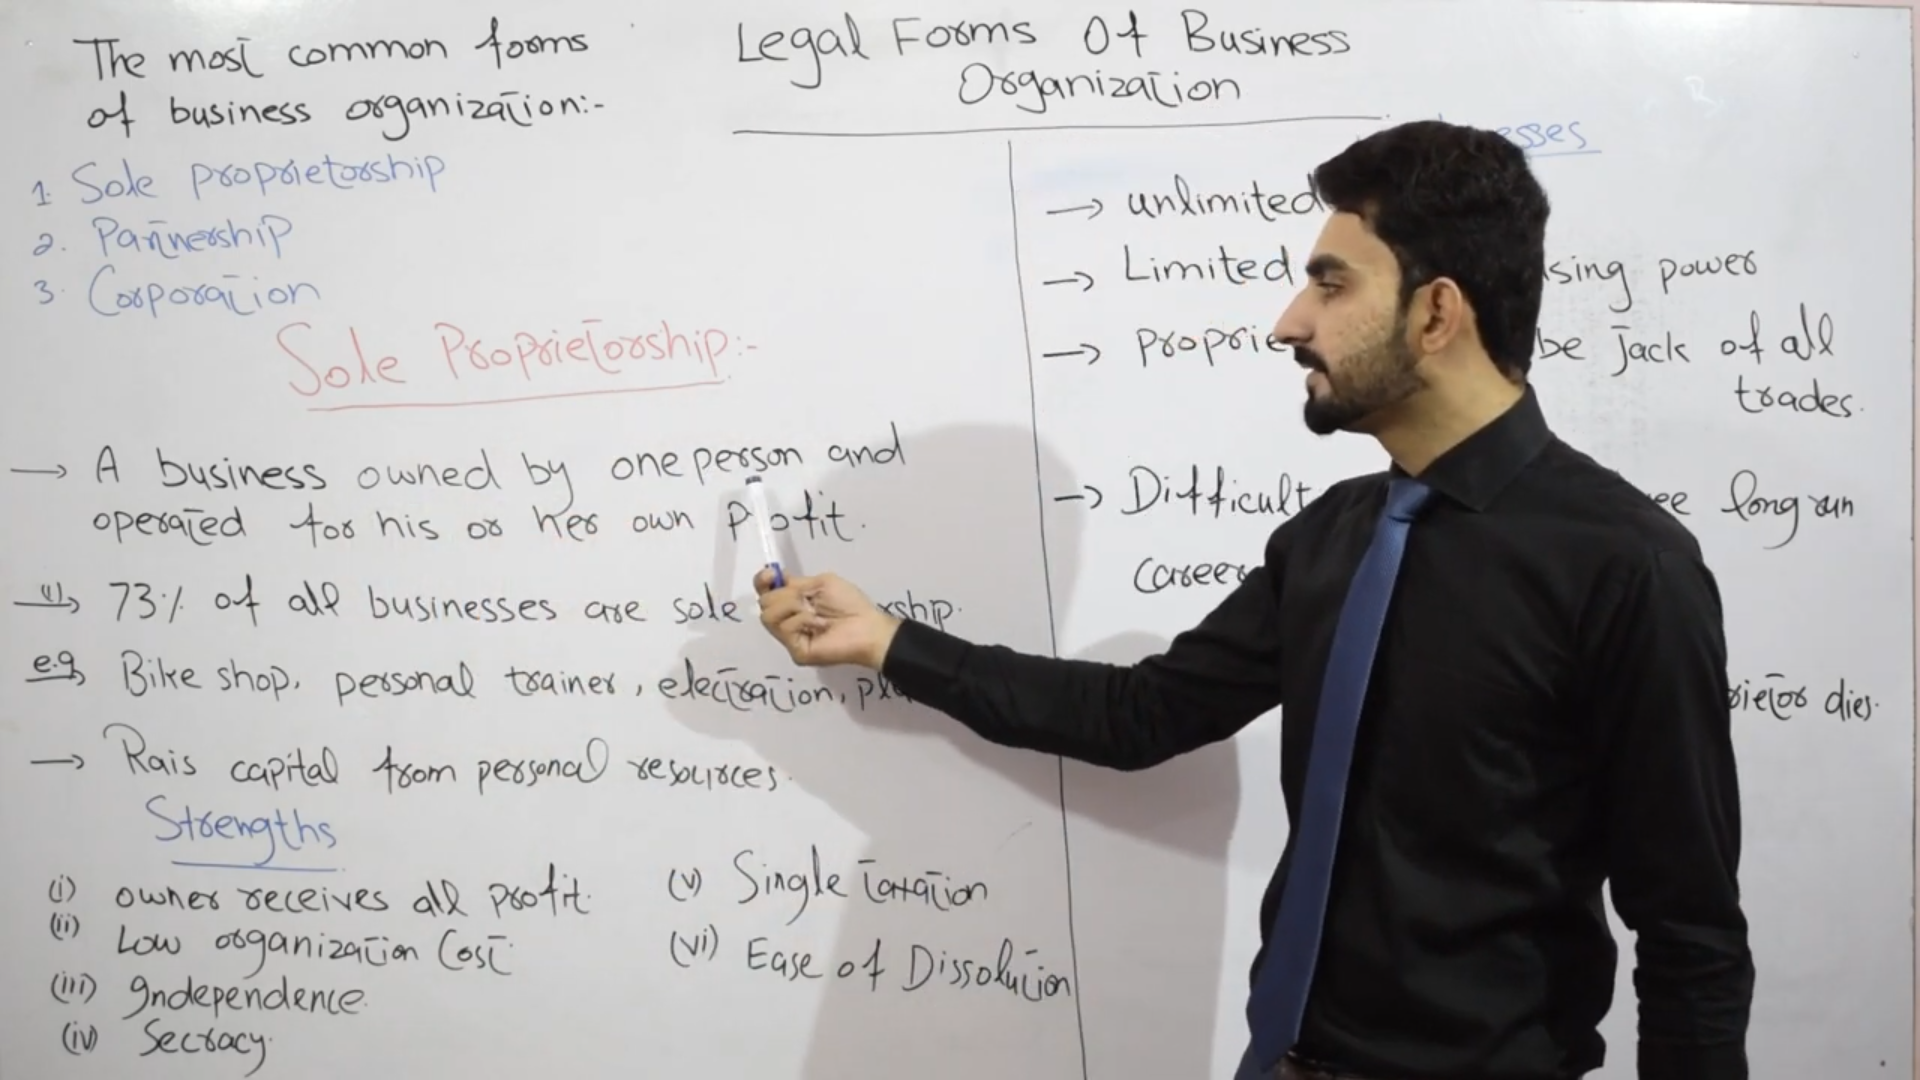 The most common forms
of business organization:-
1. Sole proprietorship
2. Partnership
3. Corporation
Legal Forms Of Business
Organization
Sole Proprietorship:-
→ A business owned by one person and
operated for his or her own Profit.
73% of all businesses are sole
e.g, Bike shop, personal trainer, electration,
→ Rais capital from personal resources.
Strengths
(i) owner receives all profit.
(ii) Low organization Cost
(iii) Independence.
(iv) Secracy.
(v) Single Taxation
(vi) Ease of Dissolution
→ unlimited
→ Limited power
→ be jack of all
trades.
→ Difficult long run
career
dies.